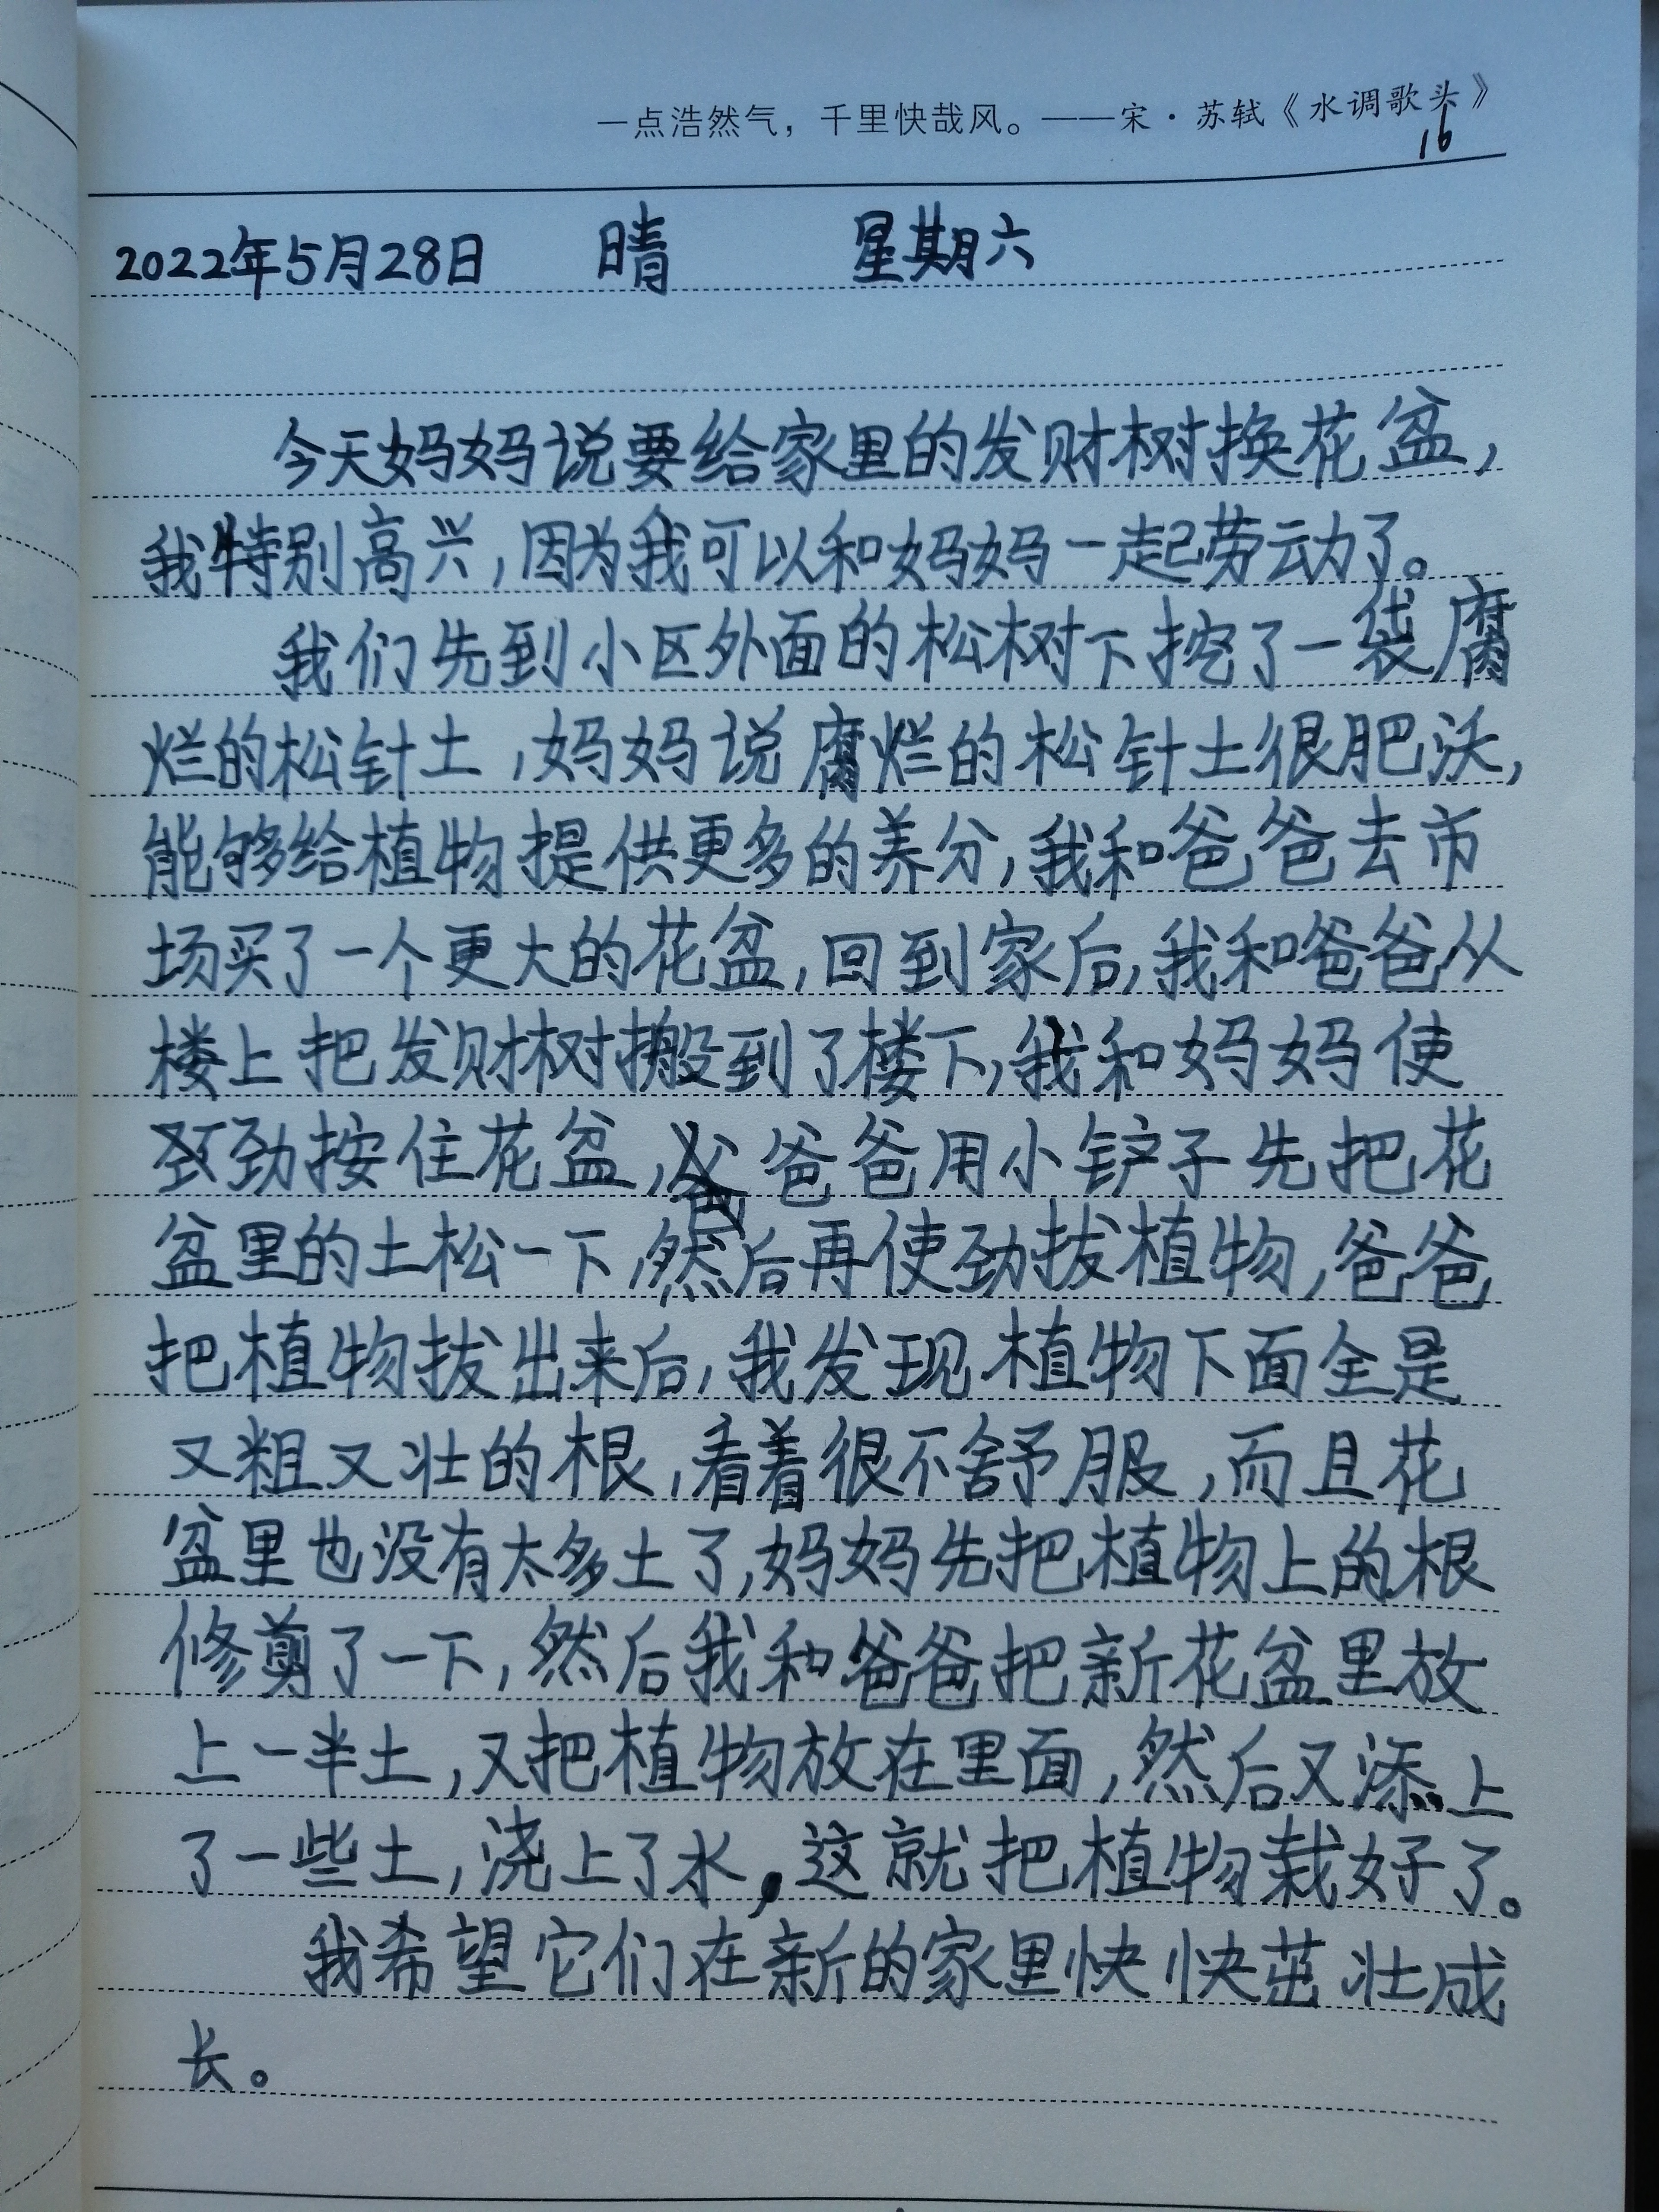 一点浩然气，千里快哉风。——宋·苏轼《水调歌头》
16
2022年5月28日 晴 星期六
今天妈妈说要给家里的发财树换花盆，
我特别高兴，因为我可以和妈妈一起劳动了。
我们先到小区外面的松树下挖了一袋腐
烂的松针土，妈妈说腐烂的松针土很肥沃，
能够给植物提供更多的养分，我和爸爸去市
场买了一个更大的花盆，回到家后，我和爸爸从
楼上把发财树搬到了楼下，我和妈妈使
劲按住花盆，爸爸用小铲子先把花
盆里的土松一下，然后再使劲拔植物，爸爸
把植物拔出来后，我发现植物下面全是
又粗又壮的根，看着很不舒服，而且花
盆里也没有太多土了，妈妈先把植物上的根
修剪了一下，然后我和爸爸把新花盆里放
上一半土，又把植物放在里面，然后又添上
了一些土，浇上了水，这就把植物栽好了。
我希望它们在新的家里快快茁壮成
长。